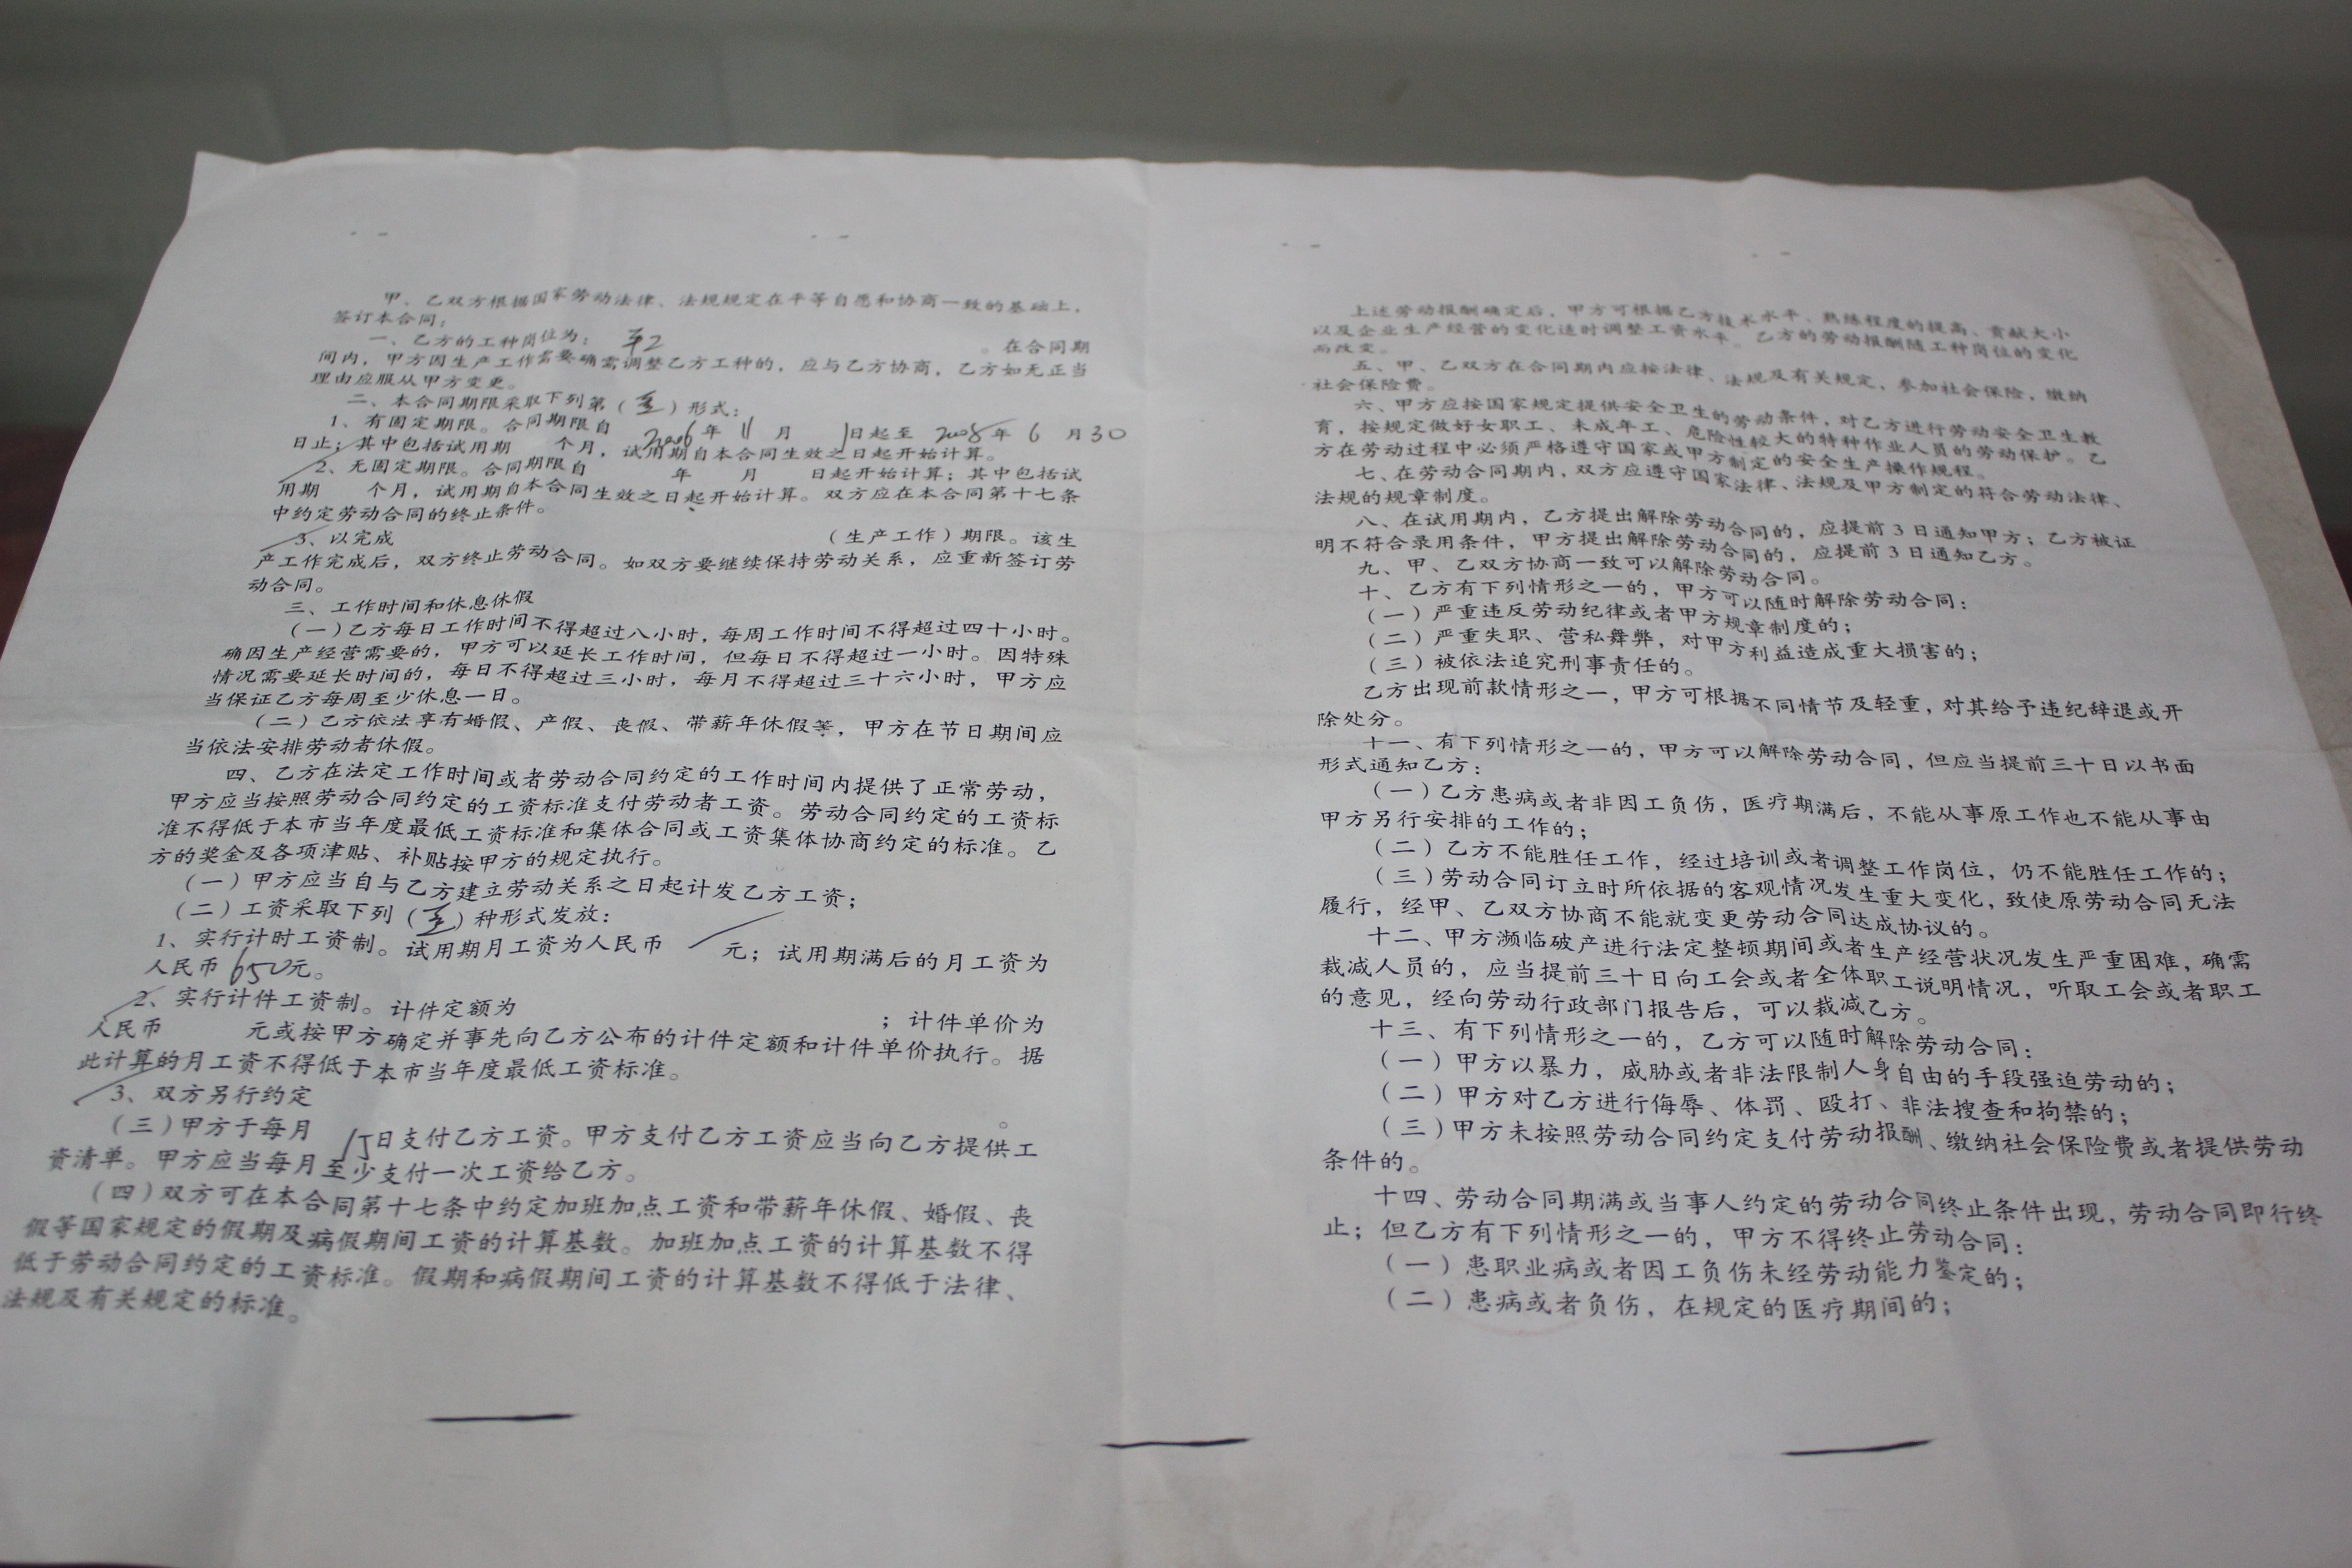 甲、乙双方根据国家劳动法律、法规规定在平等自愿和协商一致的基础上，
签订本合同：
一、乙方的工种岗位为： 。在合同期
间内，甲方因生产工作需要确需调整乙方工种的，应与乙方协商，乙方如无正当
理由应服从甲方变更。
二、本合同期限采取下列第（ ）形式：
1、有固定期限。合同期限自 2006 年 11 月 1 日起至 2008 年 6 月 30
日止；其中包括试用期 个月，试用期自本合同生效之日起开始计算。
2、无固定期限。合同期限自 年 月 日起开始计算；其中包括试
用期 个月，试用期自本合同生效之日起开始计算。双方应在本合同第十七条
中约定劳动合同的终止条件。
3、以完成 （生产工作）期限。该生
产工作完成后，双方终止劳动合同。如双方要继续保持劳动关系，应重新签订劳
动合同。
三、工作时间和休息休假
（一）乙方每日工作时间不得超过八小时，每周工作时间不得超过四十小时。
确因生产经营需要的，甲方可以延长工作时间，但每日不得超过一小时。因特殊
情况需要延长时间的，每日不得超过三小时，每月不得超过三十六小时，甲方应
当保证乙方每周至少休息一日。
（二）乙方依法享有婚假、产假、丧假、带薪年休假等，甲方在节日期间应
当依法安排劳动者休假。
四、乙方在法定工作时间或者劳动合同约定的工作时间内提供了正常劳动，
甲方应当按照劳动合同约定的工资标准支付劳动者工资。劳动合同约定的工资标
准不得低于本市当年度最低工资标准和集体合同或工资集体协商约定的标准。乙
方的奖金及各项津贴、补贴按甲方的规定执行。
（一）甲方应当自与乙方建立劳动关系之日起计发乙方工资；
（二）工资采取下列（ ）种形式发放：
1、实行计时工资制。试用期月工资为人民币 元；试用期满后的月工资为
人民币 650元。
2、实行计件工资制。计件定额为 ；计件单价为
人民币 元或按甲方确定并事先向乙方公布的计件定额和计件单价执行。据
此计算的月工资不得低于本市当年度最低工资标准。
3、双方另行约定 。
（三）甲方于每月 15日支付乙方工资。甲方支付乙方工资应当向乙方提供工
资清单。甲方应当每月至少支付一次工资给乙方。
（四）双方可在本合同第十七条中约定加班加点工资和带薪年休假、婚假、丧
假等国家规定的假期及病假期间工资的计算基数。加班加点工资的计算基数不得
低于劳动合同约定的工资标准。假期和病假期间工资的计算基数不得低于法律、
法规及有关规定的标准。
上述劳动报酬确定后，甲方可根据乙方技术水平、熟练程度的提高、贡献大小
以及企业生产经营的变化适时调整工资水平。乙方的劳动报酬随工种岗位的变化
而改变。
五、甲、乙双方在合同期内应按法律、法规及有关规定，参加社会保险，缴纳
社会保险费。
六、甲方应按国家规定提供安全卫生的劳动条件，对乙方进行劳动安全卫生教
育，按规定做好女职工、未成年工、危险性较大的特种作业人员的劳动保护。乙
方在劳动过程中必须严格遵守国家或甲方制定的安全生产操作规程。
七、在劳动合同期内，双方应遵守国家法律、法规及甲方制定的符合劳动法律、
法规的规章制度。
八、在试用期内，乙方提出解除劳动合同的，应提前 3 日通知甲方；乙方被证
明不符合录用条件，甲方提出解除劳动合同的，应提前 3 日通知乙方。
九、甲、乙双方协商一致可以解除劳动合同。
十、乙方有下列情形之一的，甲方可以随时解除劳动合同：
（一）严重违反劳动纪律或者甲方规章制度的；
（二）严重失职、营私舞弊，对甲方利益造成重大损害的；
（三）被依法追究刑事责任的。
乙方出现前款情形之一，甲方可根据不同情节及轻重，对其给予违纪辞退或开
除处分。
十一、有下列情形之一的，甲方可以解除劳动合同，但应当提前三十日以书面
形式通知乙方：
（一）乙方患病或者非因工负伤，医疗期满后，不能从事原工作也不能从事由
甲方另行安排的工作的；
（二）乙方不能胜任工作，经过培训或者调整工作岗位，仍不能胜任工作的；
（三）劳动合同订立时所依据的客观情况发生重大变化，致使原劳动合同无法
履行，经甲、乙双方协商不能就变更劳动合同达成协议的。
十二、甲方濒临破产进行法定整顿期间或者生产经营状况发生严重困难，确需
裁减人员的，应当提前三十日向工会或者全体职工说明情况，听取工会或者职工
的意见，经向劳动行政部门报告后，可以裁减乙方。
十三、有下列情形之一的，乙方可以随时解除劳动合同：
（一）甲方以暴力，威胁或者非法限制人身自由的手段强迫劳动的；
（二）甲方对乙方进行侮辱、体罚、殴打、非法搜查和拘禁的；
（三）甲方未按照劳动合同约定支付劳动报酬、缴纳社会保险费或者提供劳动
条件的。
十四、劳动合同期满或当事人约定的劳动合同终止条件出现，劳动合同即行终
止；但乙方有下列情形之一的，甲方不得终止劳动合同：
（一）患职业病或者因工负伤未经劳动能力鉴定的；
（二）患病或者负伤，在规定的医疗期间的；